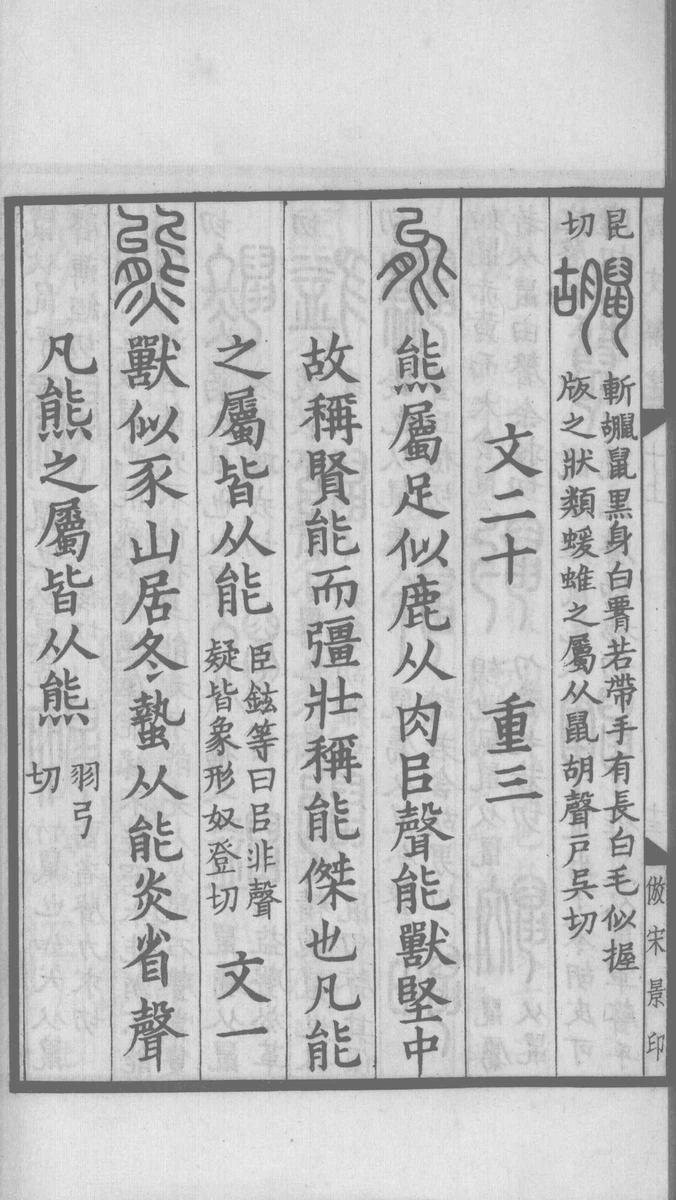 昆
切
斬䶉鼠黑身白𦝫若帶手有長白毛似握
版之狀類蝯蜼之屬从鼠胡聲戸吳切
文二十 重三
熊屬足似鹿从肉㠯聲能獸堅中
故稱賢能而彊壯稱能傑也凡能
之屬皆从能
臣鉉等曰㠯非聲
疑皆象形奴登切
文一
獸似豕山居冬蟄从能炎省聲
凡熊之屬皆从熊
羽弓
切
倣宋景印